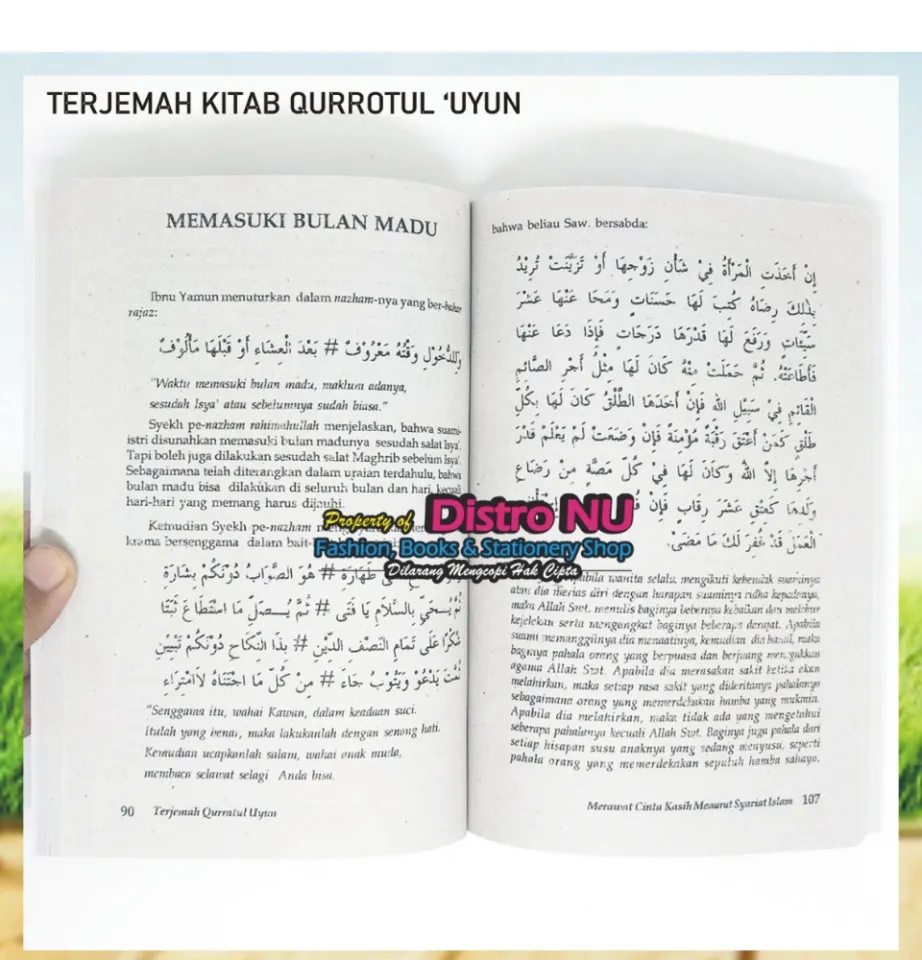 TERJEMAH KITAB QURROTUL ‘UYUN
MEMASUKI BULAN MADU
Ibnu Yamun menuturkan dalam nazham-nya yang ber-bahar
rajaz:
وَلِلدُّخُوْلِ وَقْتُهُ مَعْرُوْفٌ # بَعْدَ الْعِشَاءِ أَوْ قَبْلَهَا مَأْلُوْفٌ
"Waktu memasuki bulan madu, maklum adanya,
sesudah Isya' atau sebelumnya sudah biasa."
Syekh pe-nazham rahimahullah menjelaskan, bahwa suami-
istri disunahkan memasuki bulan madunya sesudah salat Isya'.
Tapi boleh juga dilakukan sesudah salat Maghrib sebelum Isya'.
Sebagaimana telah diterangkan dalam uraian terdahulu, bahwa
bulan madu bisa dilakukan di seluruh bulan dan hari, kecuali
hari-hari yang memang harus dijauhi.
Kemudian Syekh pe-nazham
krama bersenggama dalam bait-
طَهَارَةْ # هُوَ الصَّوَابُ دُوْنَكُمْ بِشَارَةْ
ثُمَّ يُحَيِّى بِالسَّلَامِ يَا فَتَى # ثُمَّ يُصَلِّ مَا اسْتَطَاعَ ثَبَتَا
شُكْرًا عَلَى تَمَامِ النِّصْفِ الدِّيْنِ # بِذَا النِّكَاحِ دُوْنَكُمْ تَبْيِيْنِ
ثُمَّتَ يَدْعُوْ وَيَتُوْبُ جَاءَ # مِنْ كُلِّ مَا اجْتَنَاهُ لَاامْتِرَاءَ
"Senggama itu, wahai Kawan, dalam keadaan suci.
Itulah yang benar, maka lakukanlah dengan senang hati.
Kemudian ucapkanlah salam, wahai anak muda,
membaca selawat selagi Anda bisa.
90 Terjemah Qurratul Uyun
bahwa beliau Saw. bersabda:
إِنْ أَخَذَتِ الْمَرْأَةُ فِيْ شَأْنِ زَوْجِهَا أَوْ تَزَيَّنَتْ تُرِيْدُ
بِذٰلِكَ رِضَاهُ كُتِبَ لَهَا حَسَنَاتٍ وَمَحَا عَنْهَا عَشْرَ
سَيِّئَاتٍ وَرَفَعَ لَهَا قَدْرَهَا دَرَجَاتٍ فَإِذَا دَعَا عَنْهَا
فَأَطَاعَتْهُ. ثُمَّ حَمَلَتْ مِنْهُ كَانَ لَهَا مِثْلُ أَجْرِ الصَّائِمِ
الْقَائِمِ فِيْ سَبِيْلِ اللهِ فَإِنْ أَخَذَهَا الطَّلْقُ كَانَ لَهَا بِكُلِّ
طَلْقٍ كَمَنْ أَعْتَقَ رَقَبَةً مُؤْمِنَةً فَإِنْ وَضَعَتْ لَمْ يَعْلَمْ قَدْرَ
أَجْرِهَا إِلَّا اللهُ وَكَانَ لَهَا فِيْ كُلِّ مَصَّةٍ مِنْ رَضَاعِ
وَلَدِهَا كَعِتْقِ عَشْرَ رِقَابٍ فَإِنْ
الْعَمَلَ قَدْ غُفِرَ لَكَ مَا مَضَى.
Apabila wanita selalu mengikuti kehendak suaminya
atau dia merias diri dengan harapan suaminya ridha kepadanya,
maka Allah Swt. menulis baginya beberapa kebaikan dan melebur
kejelekan serta mengangkat baginya beberapa derajat. Apabila
suami memanggilnya dia menaatinya, kemudian dia hamil, maka
baginya pahala orang yang berpuasa dan berjuang menegakkan
agama Allah Swt. Apabila dia merasakan sakit ketika akan
melahirkan, maka setiap rasa sakit yang dideritanya pahalanya
sebagaimana orang yang memerdekakan hamba yang mukmin.
Apabila dia melahirkan, maka tidak ada yang mengetahui
seberapa pahalanya kecuali Allah Swt. Baginya juga pahala dari
setiap hisapan susu anaknya yang sedang menyusu, seperti
pahala orang yang memerdekakan sepuluh hamba sahaya.
Merawat Cinta Kasih Menurut Syariat Islam 107
Property of Distro NU
Fashion, Books & Stationery Shop
Dilarang Mengcopi Hak Cipta